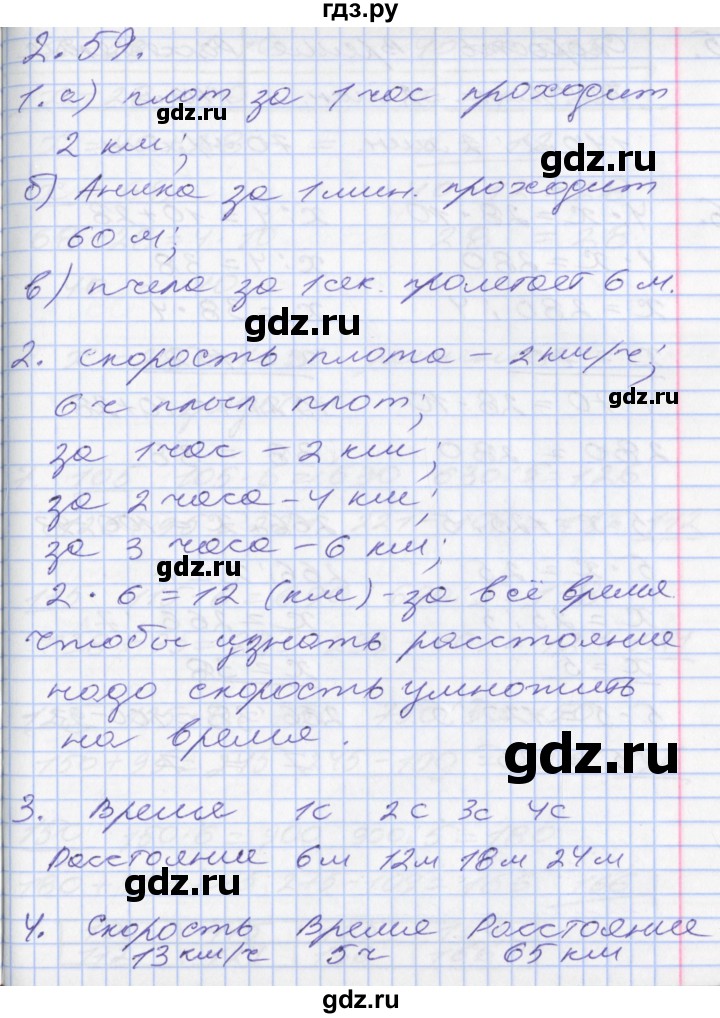 гдз.ру
2.59.
1. а) плот за 1 час проходит
gdz.ru
2 км;
gdz.ru
б) Аника за 1 мин. проходит
60 м;
в) пчела за 1 сек. пролетает 6 м.
gdz.ru
2. скорость плота – 2 км/ч;
6 ч плыл плот;
gdz.ru
за 1 час – 2 км;
за 2 часа – 4 км;
за 3 часа – 6 км;
gdz.ru
2 · 6 = 12 (км) - за всё время
чтобы узнать расстояние
надо скорость умножить
на время.
gdz.ru
3. Время 1с 2с 3с 4с
Расстояние 6м 12м 18м 24м
gdz.ru
4. Скорость Время Расстояние
13 км/ч 5ч 65 км
gdz.ru